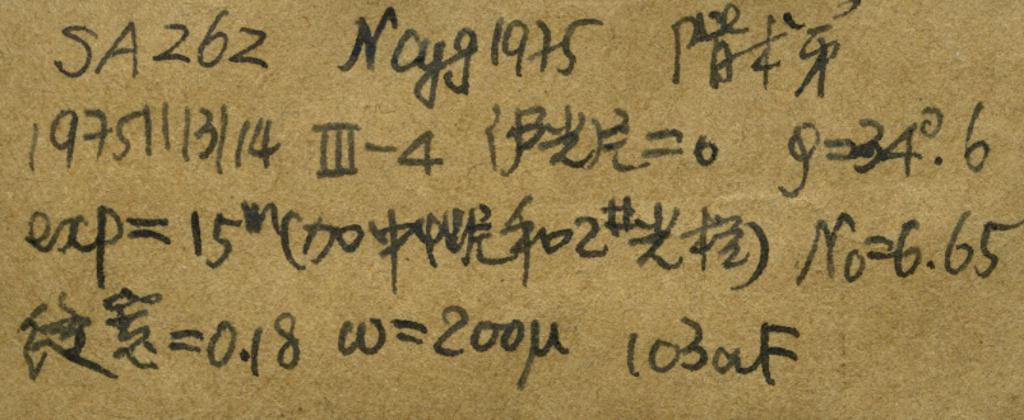 SA262 Ncyg1975 階梯第
1975 11 13/14 III-4 滤光片=0 φ=34°.6
exp=15ᵐ(加中性昵和2#光栏) N₀=6.65
缝宽=0.18 ω=200μ 103aF